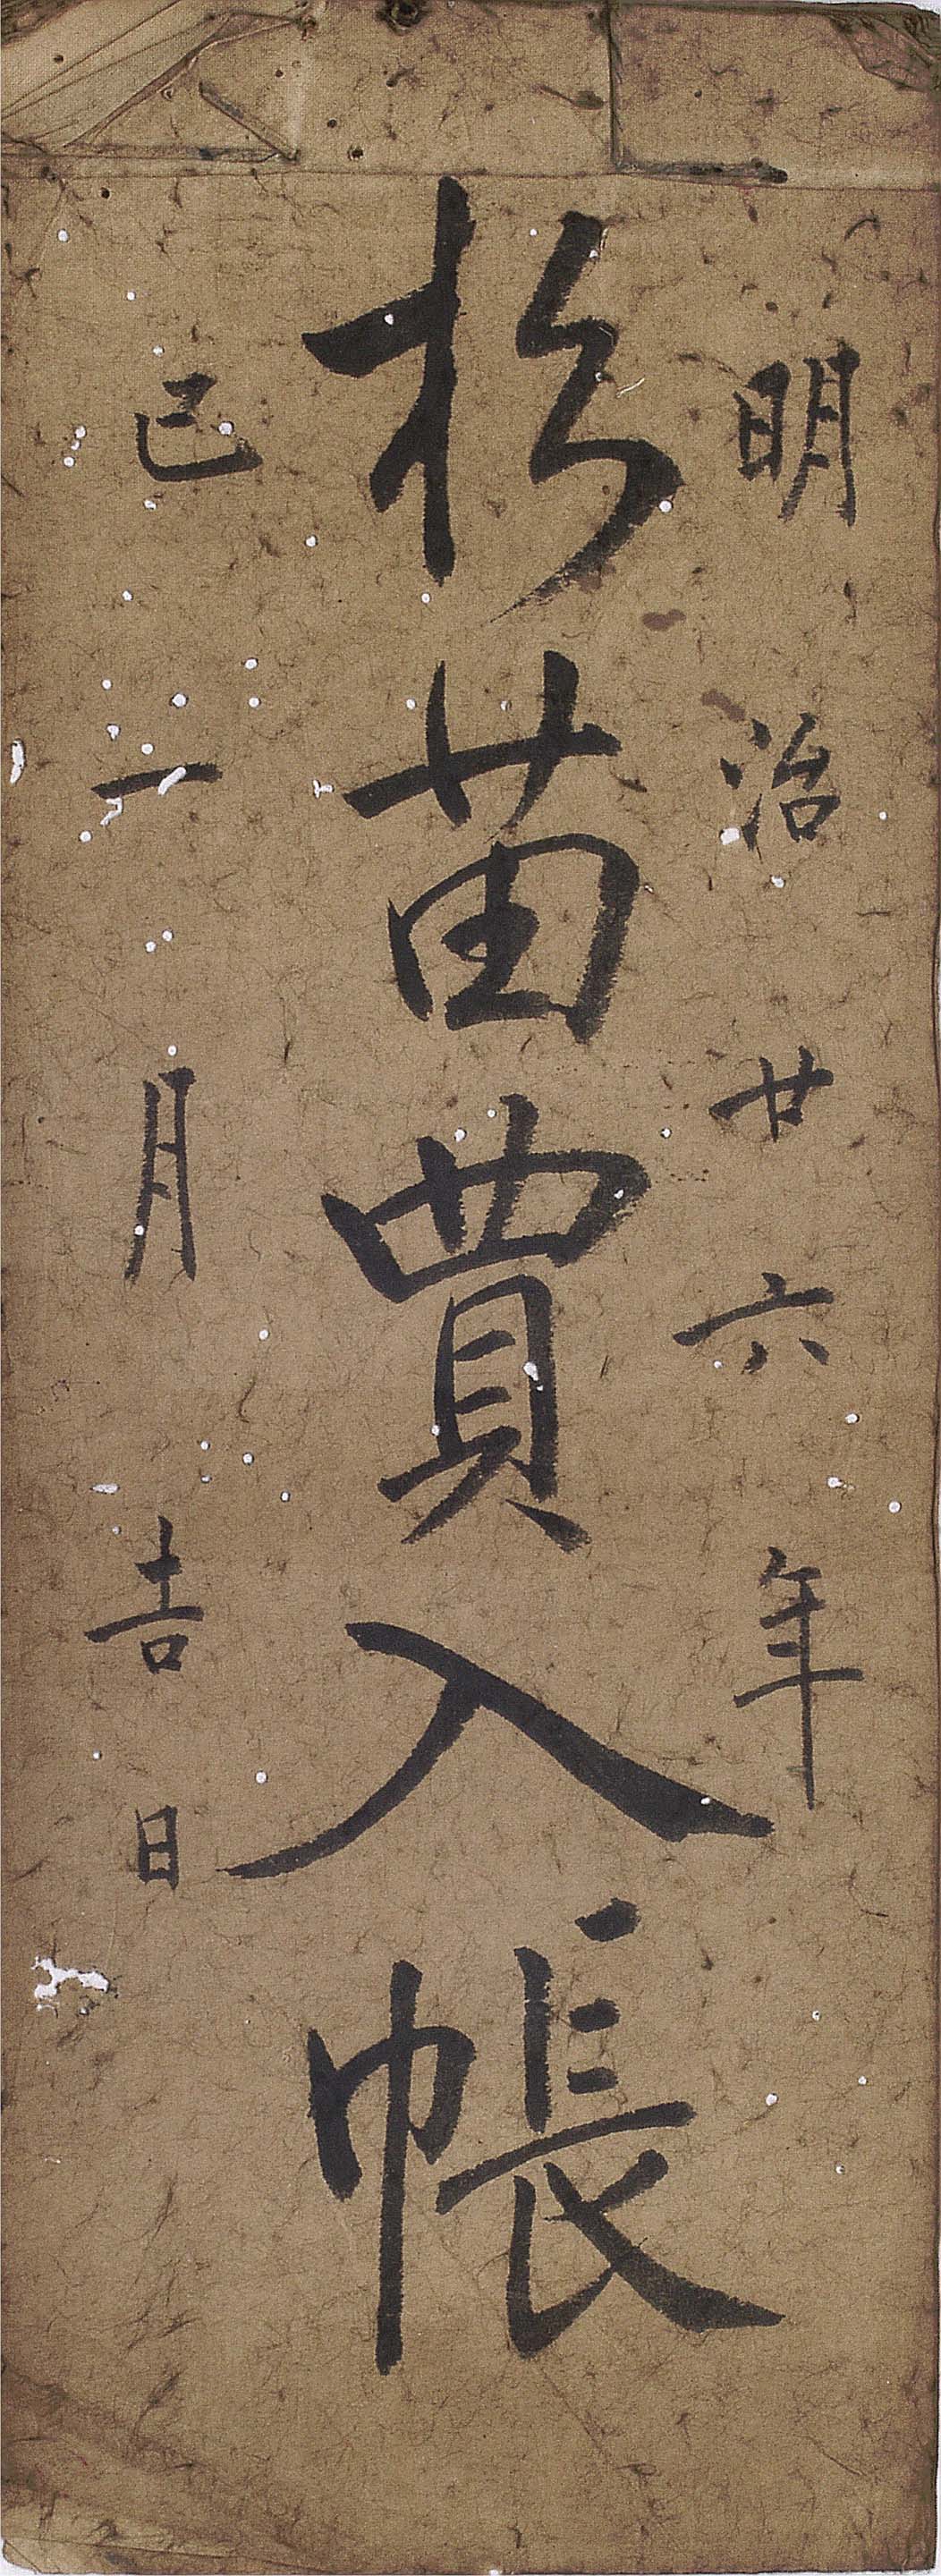 明治廿六年
杉苗買入帳
巳一月吉日